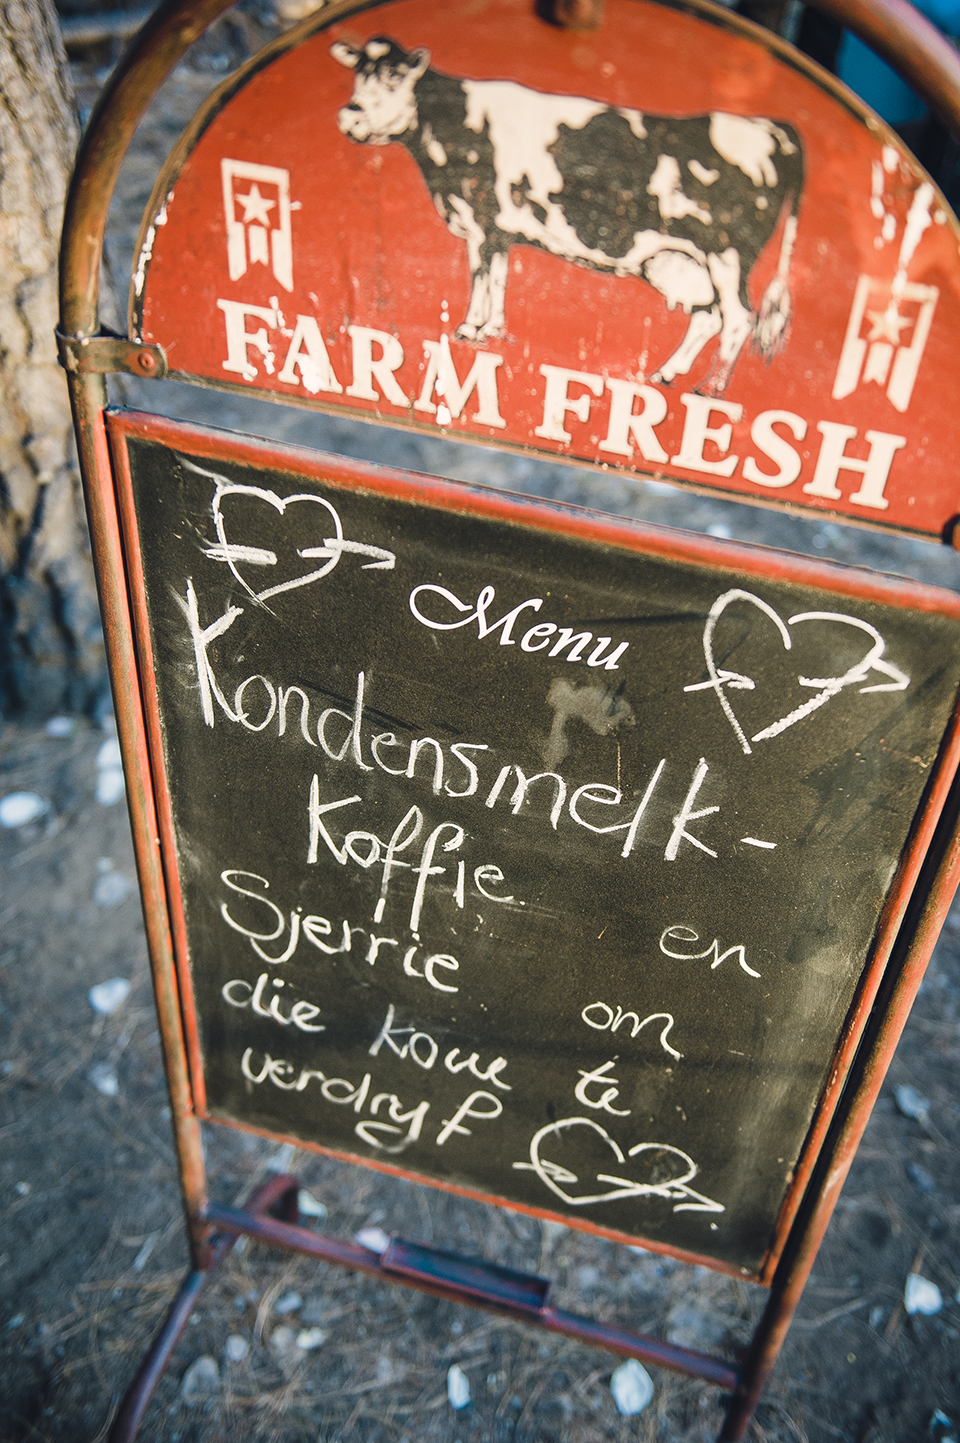 FARM FRESH
Menu
Kondensmelk-
Koffie en
Sjerrie om
die koue te
verdryf